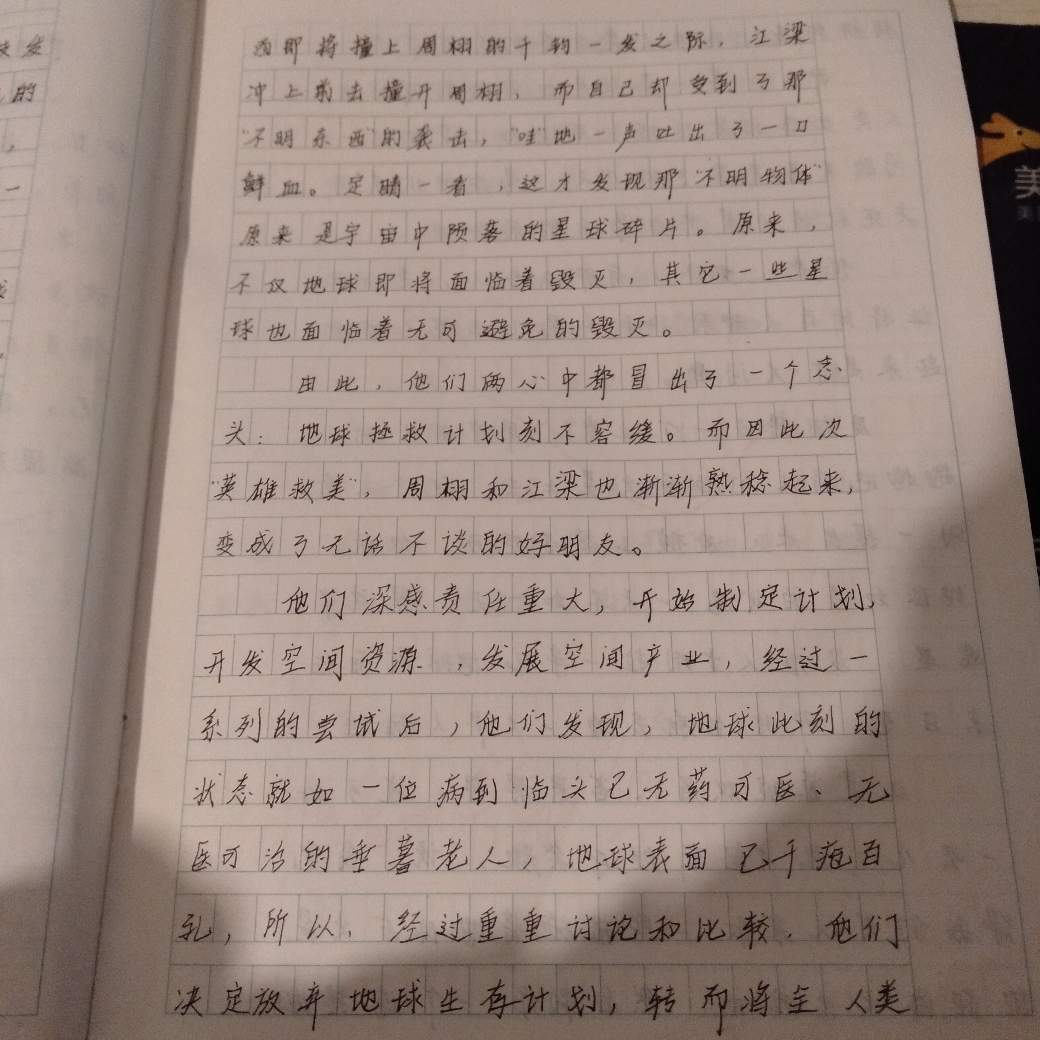 西即将撞上周栩的千钧一发之际，江梁
冲上前去撞开周栩，而自己却受到了那
"不明东西"的袭击，"哇"地一声吐出了一口
鲜血。定睛一看，这才发现那"不明物体"
原来是宇宙中陨落的星球碎片。原来，
不仅地球即将面临着毁灭，其它一些星
球也面临着无可避免的毁灭。
由此，他们俩心中都冒出了一个念
头：地球拯救计划刻不容缓。而因此次
"英雄救美"，周栩和江梁也渐渐熟稔起来，
变成了无话不谈的好朋友。
他们深感责任重大，开始制定计划，
开发空间资源，发展空间产业，经过一
系列的尝试后，他们发现，地球此刻的
状态就如一位病到临头已无药可医、无
医可治的垂暮老人，地球表面已千疮百
孔，所以，经过重重讨论和比较，他们
决定放弃地球生存计划，转而将全人类
发
的
一
美